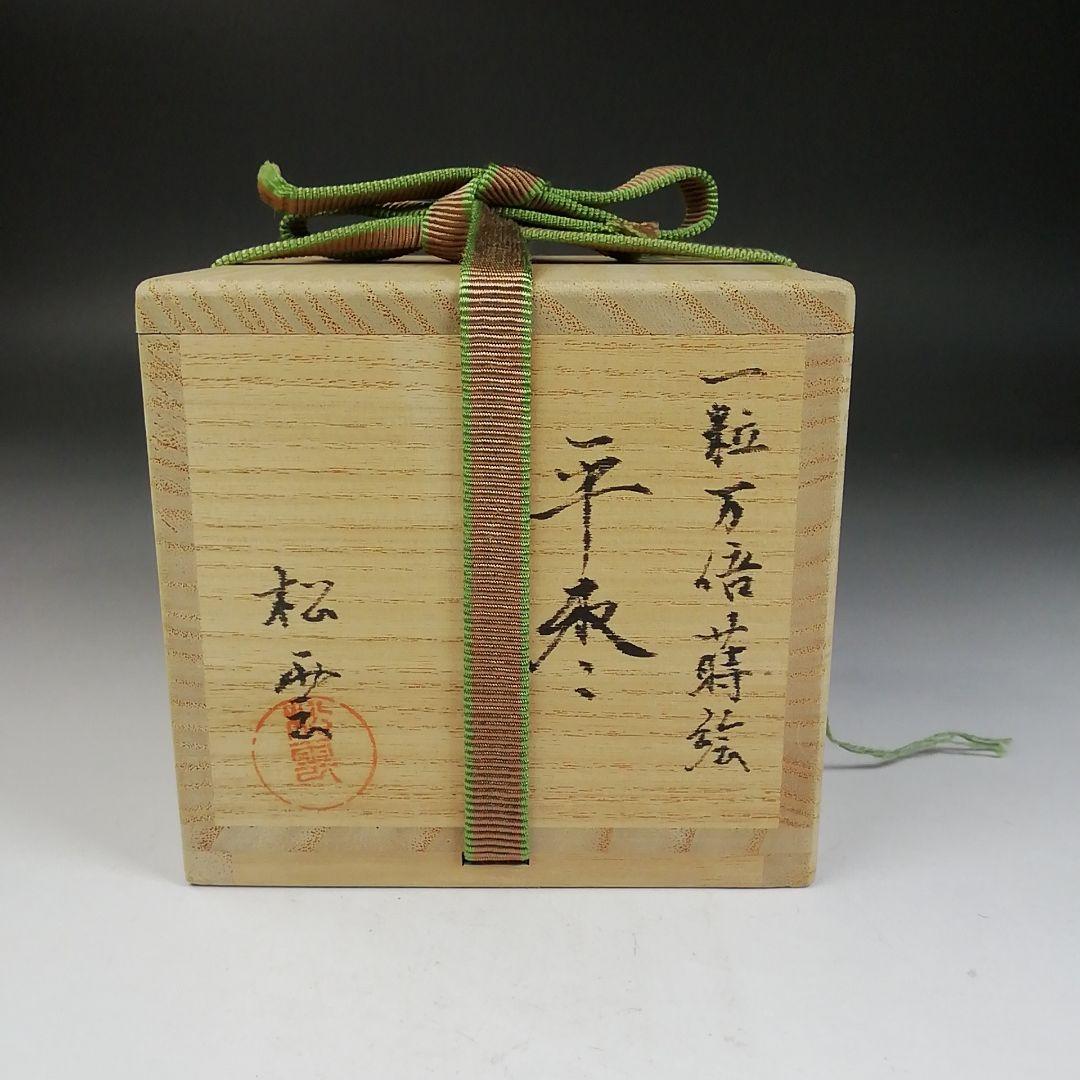 一粒万倍蒔絵
平棗
松雲